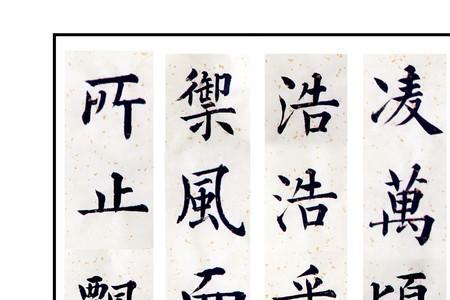 凌萬頃
浩浩乎
禦風而
所止飄